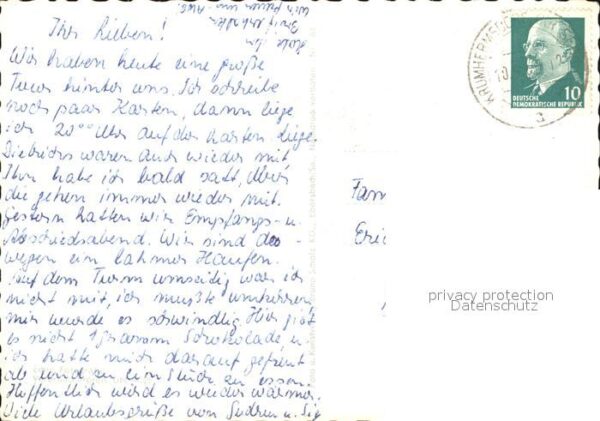 Ihr Lieben!
Wir haben heute eine große
Tour hinter uns. Ich schreibe
noch paar Karten, dann liege
ich 20⁰⁰ Uhr auf der harten Liege.
Dietrichs waren auch wieder mit
Ihn habe ich bald satt, aber
die gehen immer wieder mit.
Gestern hatten wir Empfangs- u.
Abschiedsabend. Wir sind des-
wegen ein lahmer Haufen.
Auf dem Turm umseitig war ich
nicht mit, ich mußte umkehren
mir wurde es schwindlig. Hier gibt
es nicht 1 Gramm Schokolade, u.
ich hatte mich darauf gefreut
ab und zu ein Stück zu essen.
Hoffentlich wird es wieder wärmer.
Viele Urlaubsgrüße von Gudrun u. Sig
KRUMHERMSD
10
DEUTSCHE
DEMOKRATISCHE REPUBLIK
a
Fam
Eric
privacy protection
Datenschutz